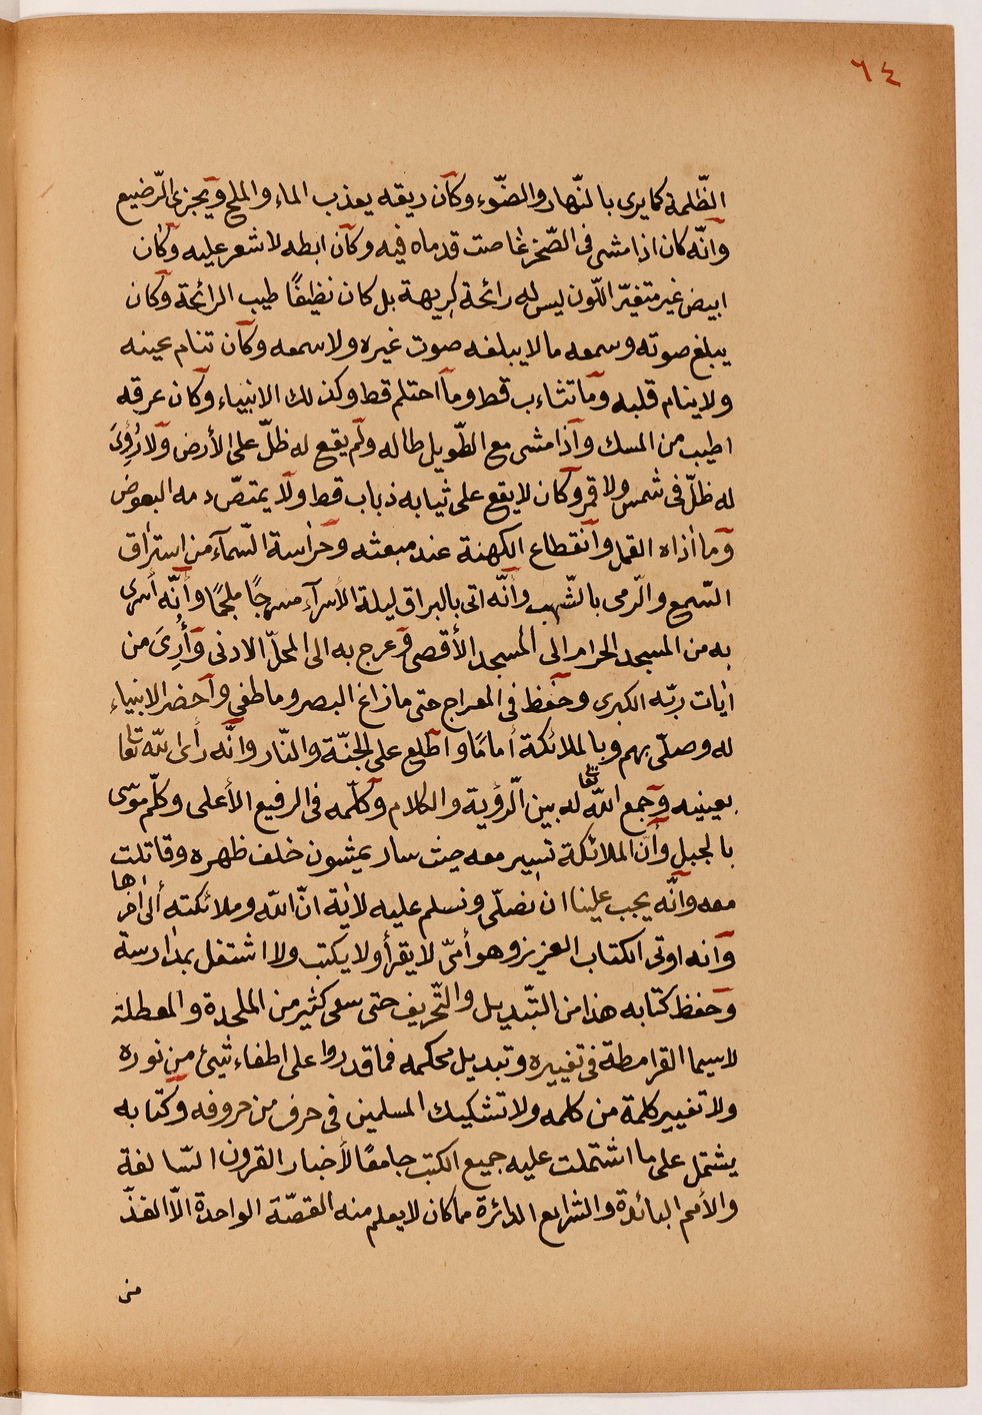 ٦٤
الظّلمة كما يرى بالنّهار والضّوء وكان ريقه يعذب الماء والملح ويجزى الرّضيع
وانّه كان اذا مشى فى الصّخر غاصت قدماه فيه وكان ابطه لا شعر عليه وكان
ابيض غير متغيّر اللّون ليس له رائحة كريهة بل كان نظيفًا طيب الرائحة وكان
يبلغ صوته وسمعه ما لا يبلغه صوت غيره ولا سمعه وكان تنام عينه
ولا ينام قلبه وما تثاءب قط وما احتلم قط وكذلك الانبياء وكان عرقه
اطيب من المسك واذا مشى مع الطّويل طاله ولم يقع له ظلّ على الأرض ولا رُؤِىَ
له ظلّ فى شمس ولا قمر وكان لا يقع على ثيابه ذباب قط ولا يمتصّ دمه البعوض
وما اٰذاه القمل وانقطاع الكهنة عند مبعثه وحراسة السّمآء من استراق
السّمع والرّمى بالشّهب وانّه اتى بالبراق ليلة الأسرآء مسرجًا ملجمًا وأنّه أسرى
به من المسجد الحرام الى المسجد الأقصى وعرج به الى المحلّ الادنى وأُرِىَ من
اٰيات ربّه الكبرى وحفظ فى المعراج حتى ما زاغ البصر وما طغى واحضر الانبياء
له وصلّى بهم وبالملائكة أمامًا واطّلع على الجنّة والنّار وانّه رأى الله تعا
بعينيه وجمع الله تعا له بين الرّؤية والكلام وكلّمه فى الرفيع الأعلى وكلّم موسى
بالجبل وأنّ الملائكة تسير معه حيث سار يمشون خلف ظهره وقاتلت
معه وانّه يجب علينا ان نصلّى ونسلم عليه لاٰية انّ الله وملائكته ألى اٰخرها
وانه اوتى الكتاب العزيز وهو أمىّ لا يقرأ ولا يكتب ولا اشتغل بمدارسة
وحفظ كتابه هذا من التّبديل والتّحريف حتى سعى كثير من الملحدة والمعطلة
لاسيما القرامطة فى تغييره وتبديل محكمه فما قدروا على اطفاء شيئ من نوره
ولا تغيير كلمة من كلمه ولا تشكيك المسلمين فى حرف من حروفه وكتابه
يشتمل على ما اشتملت عليه جميع الكتب جامعًا لأخبار القرون السّالفة
والأمم البائدة والشرايع الداثرة مما كان لا يعلم منه القصّة الواحدة الّا الفذّ
من